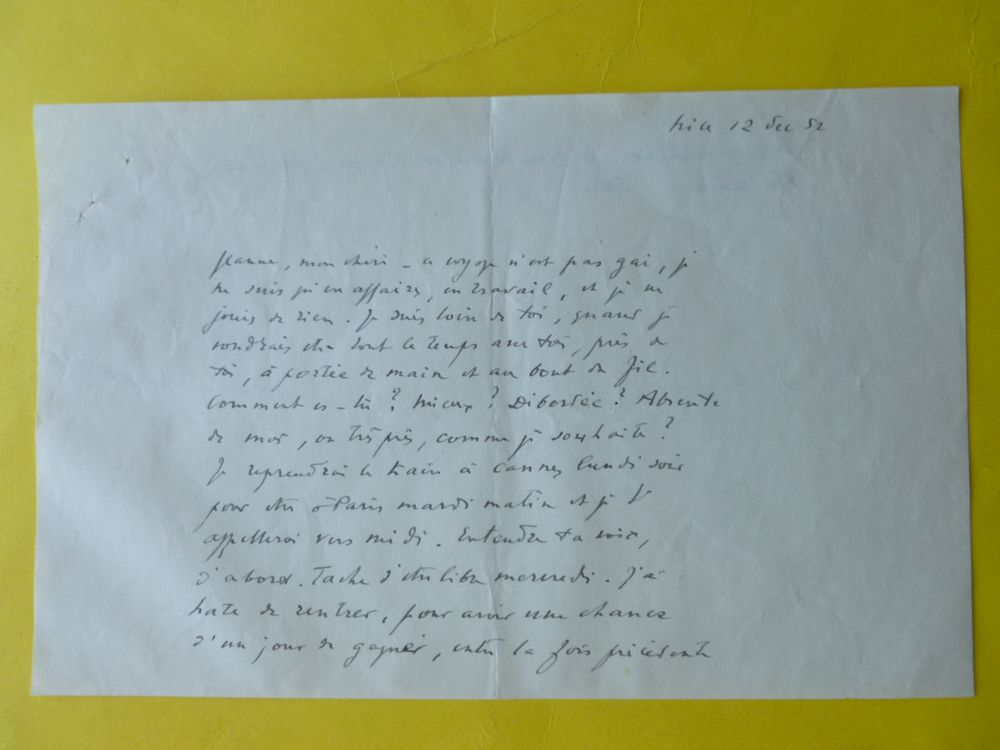 Nice 12 Dec 52
Jeanne, mon chéri – ce voyage n'est pas gai, je
ne suis qu'en affaires, en travail, et je ne
jouis de rien. Je suis loin de toi, quand je
voudrais être tout le temps avec toi, près de
toi, à portée de main et au bout du fil.
Comment es-tu ? Mieux ? Débordée ? Absente
de moi, ou très près, comme je souhaite ?
Je reprendrai le train à Cannes lundi soir
pour être à Paris mardi matin et je t'
appellerai vers midi. Entendre ta voix,
d'abord. Tache d'être libre mercredi. J'ai
hate de rentrer, pour avoir une chance
d'un jour de gagner, entre la fois précédente